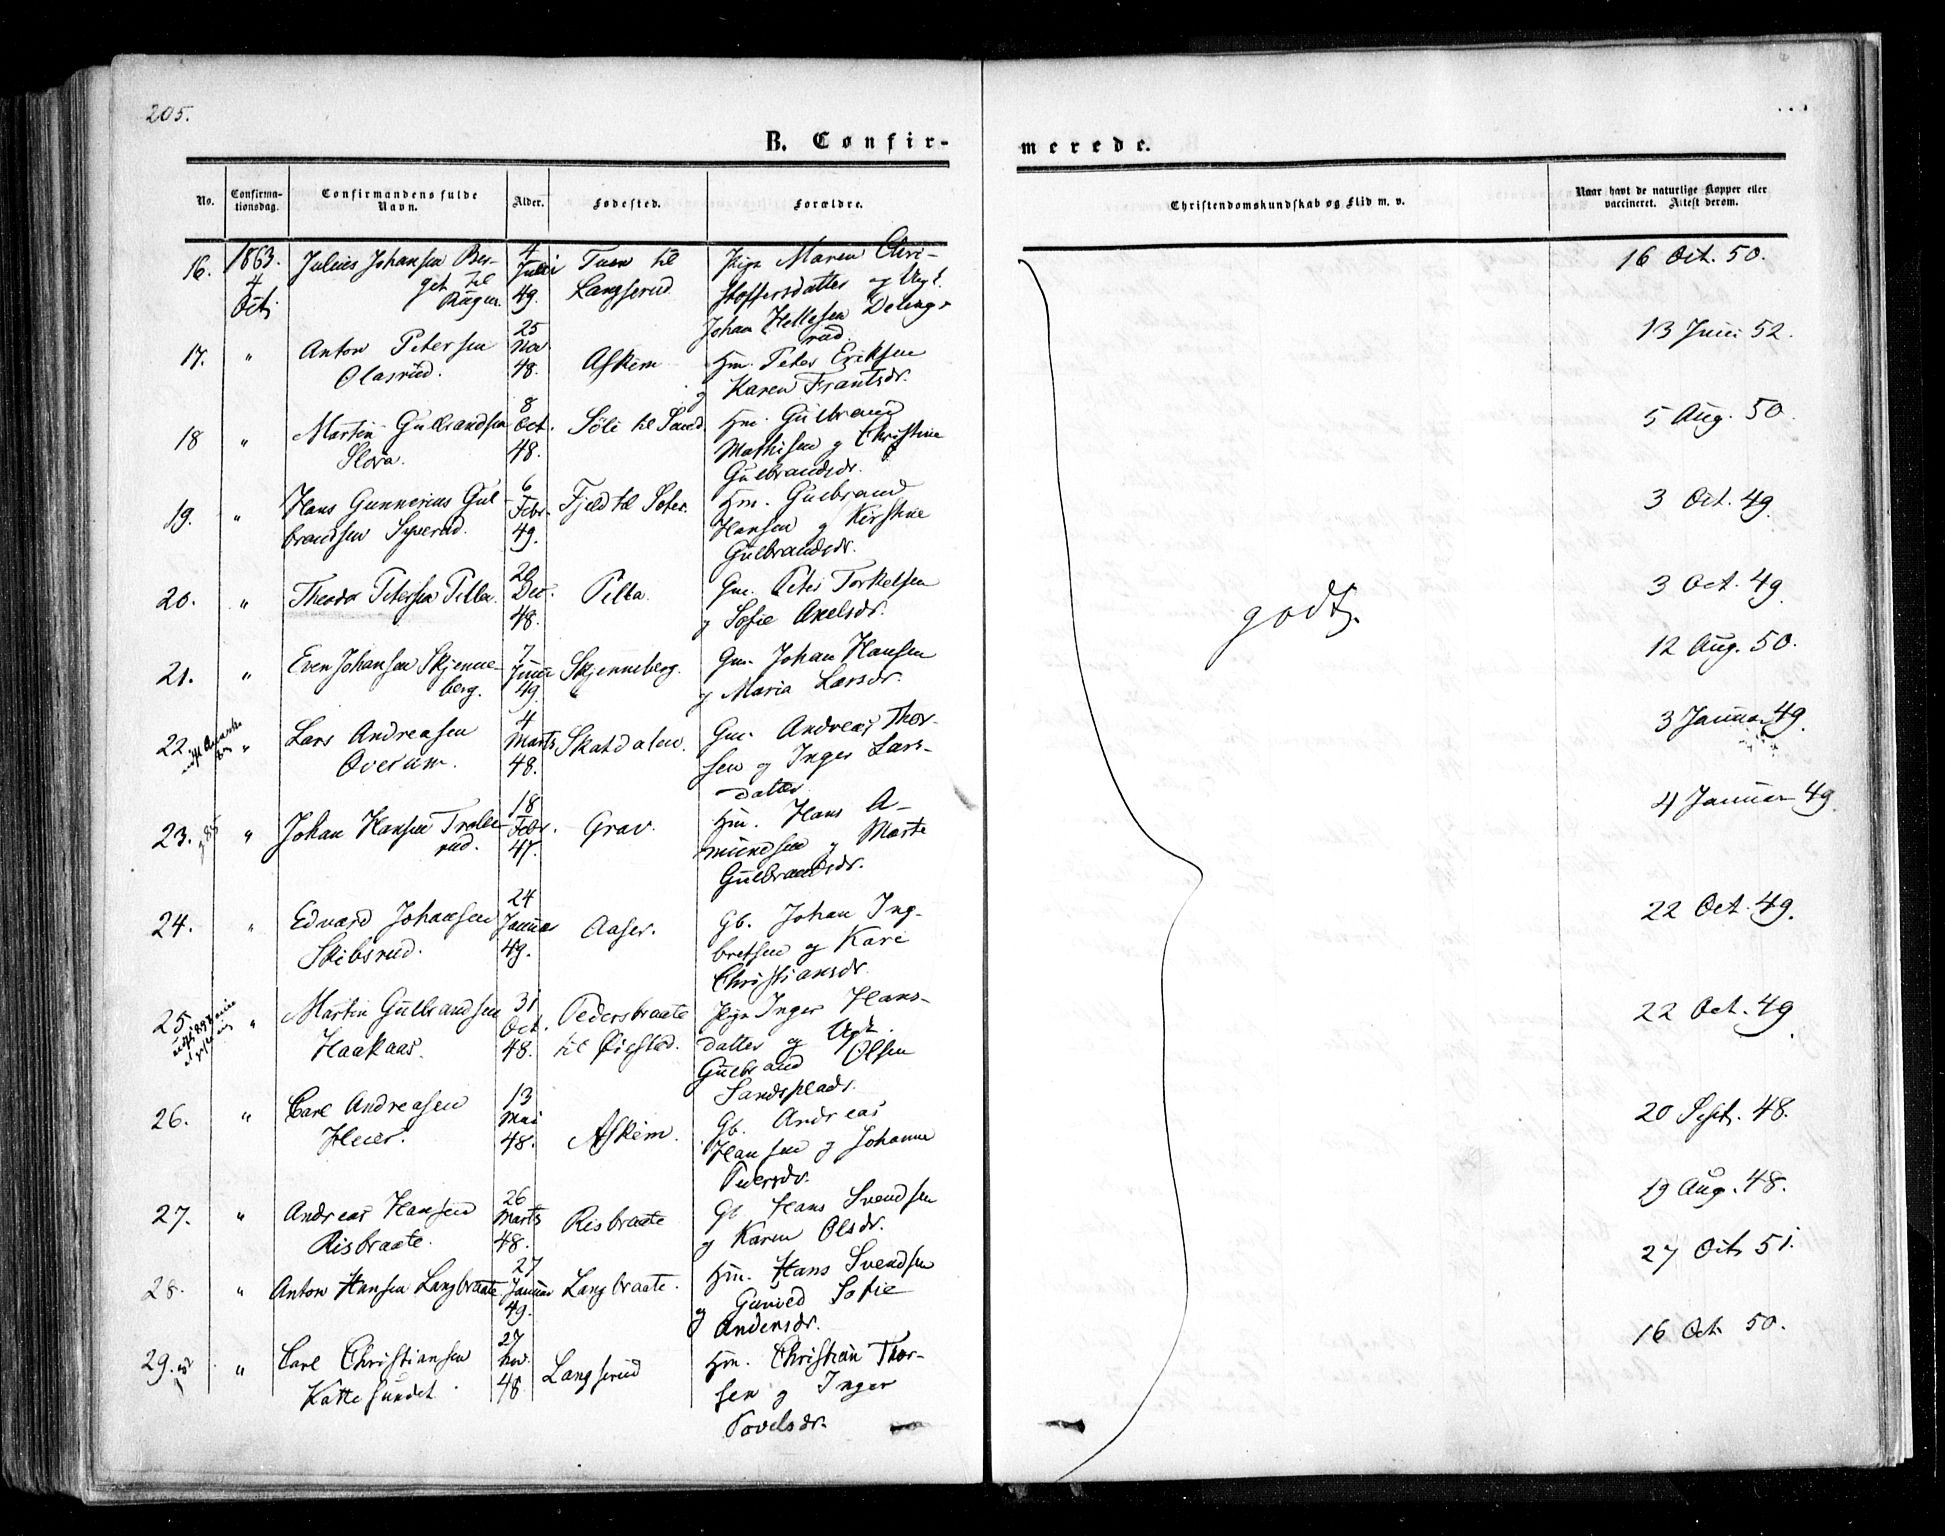 205.
B. Confir-
merede.
No.
Confirma-
tionsdag.
Confirmandens fulde
Navn.
Alder.
Fødested.
Forældre.
Christendomskundskab og Flid m. v.
Naar havt de naturlige Kopper eller
vaccineret. Attest derom.
16. 1863. Julius Johansen Ber- 4 Tuen til Pige Maren Chri- 16 Oct. 50.
4 get til Juli Langserud. stoffersdatter og Ugk.
Oct. 49. Johan Hellesen Delings-
rud.
17. " Anton Petersen 25 Askim Hm. Peter Eriksen 13 Juni 52.
Olasrud. Nov. og Karen Frantsdr.
48.
18 " Martin Gulbrandsen 8 Søli til Sand Hm. Gulbrand 5 Aug. 50.
Slora. Oct. Mathisen og Christine
48. Gulbrandsdr.
19. " Hans Gunnerius Gul- 6 Fjeld til Soter. Hm. Gulbrand 3 Oct. 49.
brandsen Syverud. Febr. Hansen og Kirstine
49. Gulbrandsdr.
20. " Theodor Petersen Pilba. 20 Pilba. Gm. Peter Torkelsen 3 Oct. 49.
Dec. og Sofie Axelsdr.
48.
godt.
21. " Even Johansen Skjenne- 7 Skjenneberg. Gm. Johan Hansen 12 Aug. 50.
berg. Juni og Maria Larsdr.
49.
22. " Lars Andreasen 4 Skatdalen. Gm. Andreas Thor- 3 Januar 49.
Overum. Marts sen og Inger Lars-
48. datter
23. " Johan Hansen Tralle- 18 Grav. Hm. Hans A- 4 Januar 49.
rud. Febr. mundsen og Marte
47. Gulbrandsdr.
24. " Edvard Johansen 24 Aaser. Gb. Johan Ing- 22 Oct. 49.
Skibsrud. Januar bretsen og Kari
49. Christiansdr.
25. " Martin Gulbrandsen 31 Pedersbraate Pige Inger Hans- 22 Oct. 49.
Haakaas. Oct. til Øiestad. datter og Ugk.
48. Gulbrand Olsen
Sandsplads.
26. " Carl Andreasen 13 Askim. Gb. Andreas 20 Sept. 48.
Heier. Mai Hansen og Johanne
48. Pedersdr.
27. " Andreas Hansen 26 Risbraate Gb. Hans Svendsen 19 Aug. 48.
Risbraate. Marts og Karen Olsdr.
48.
28. " Anton Hansen Langbraate 27 Langbraate. Hm. Hans Svendsen 27 Oct. 51.
Januar og Gunild Sofie
49. Andersdr.
29. " Carl Christiansen 27 Langserud Hm. Christian Thor- 16 Oct. 50.
Kattesundet. Nov. sen og Inger
48. Povelsdr.